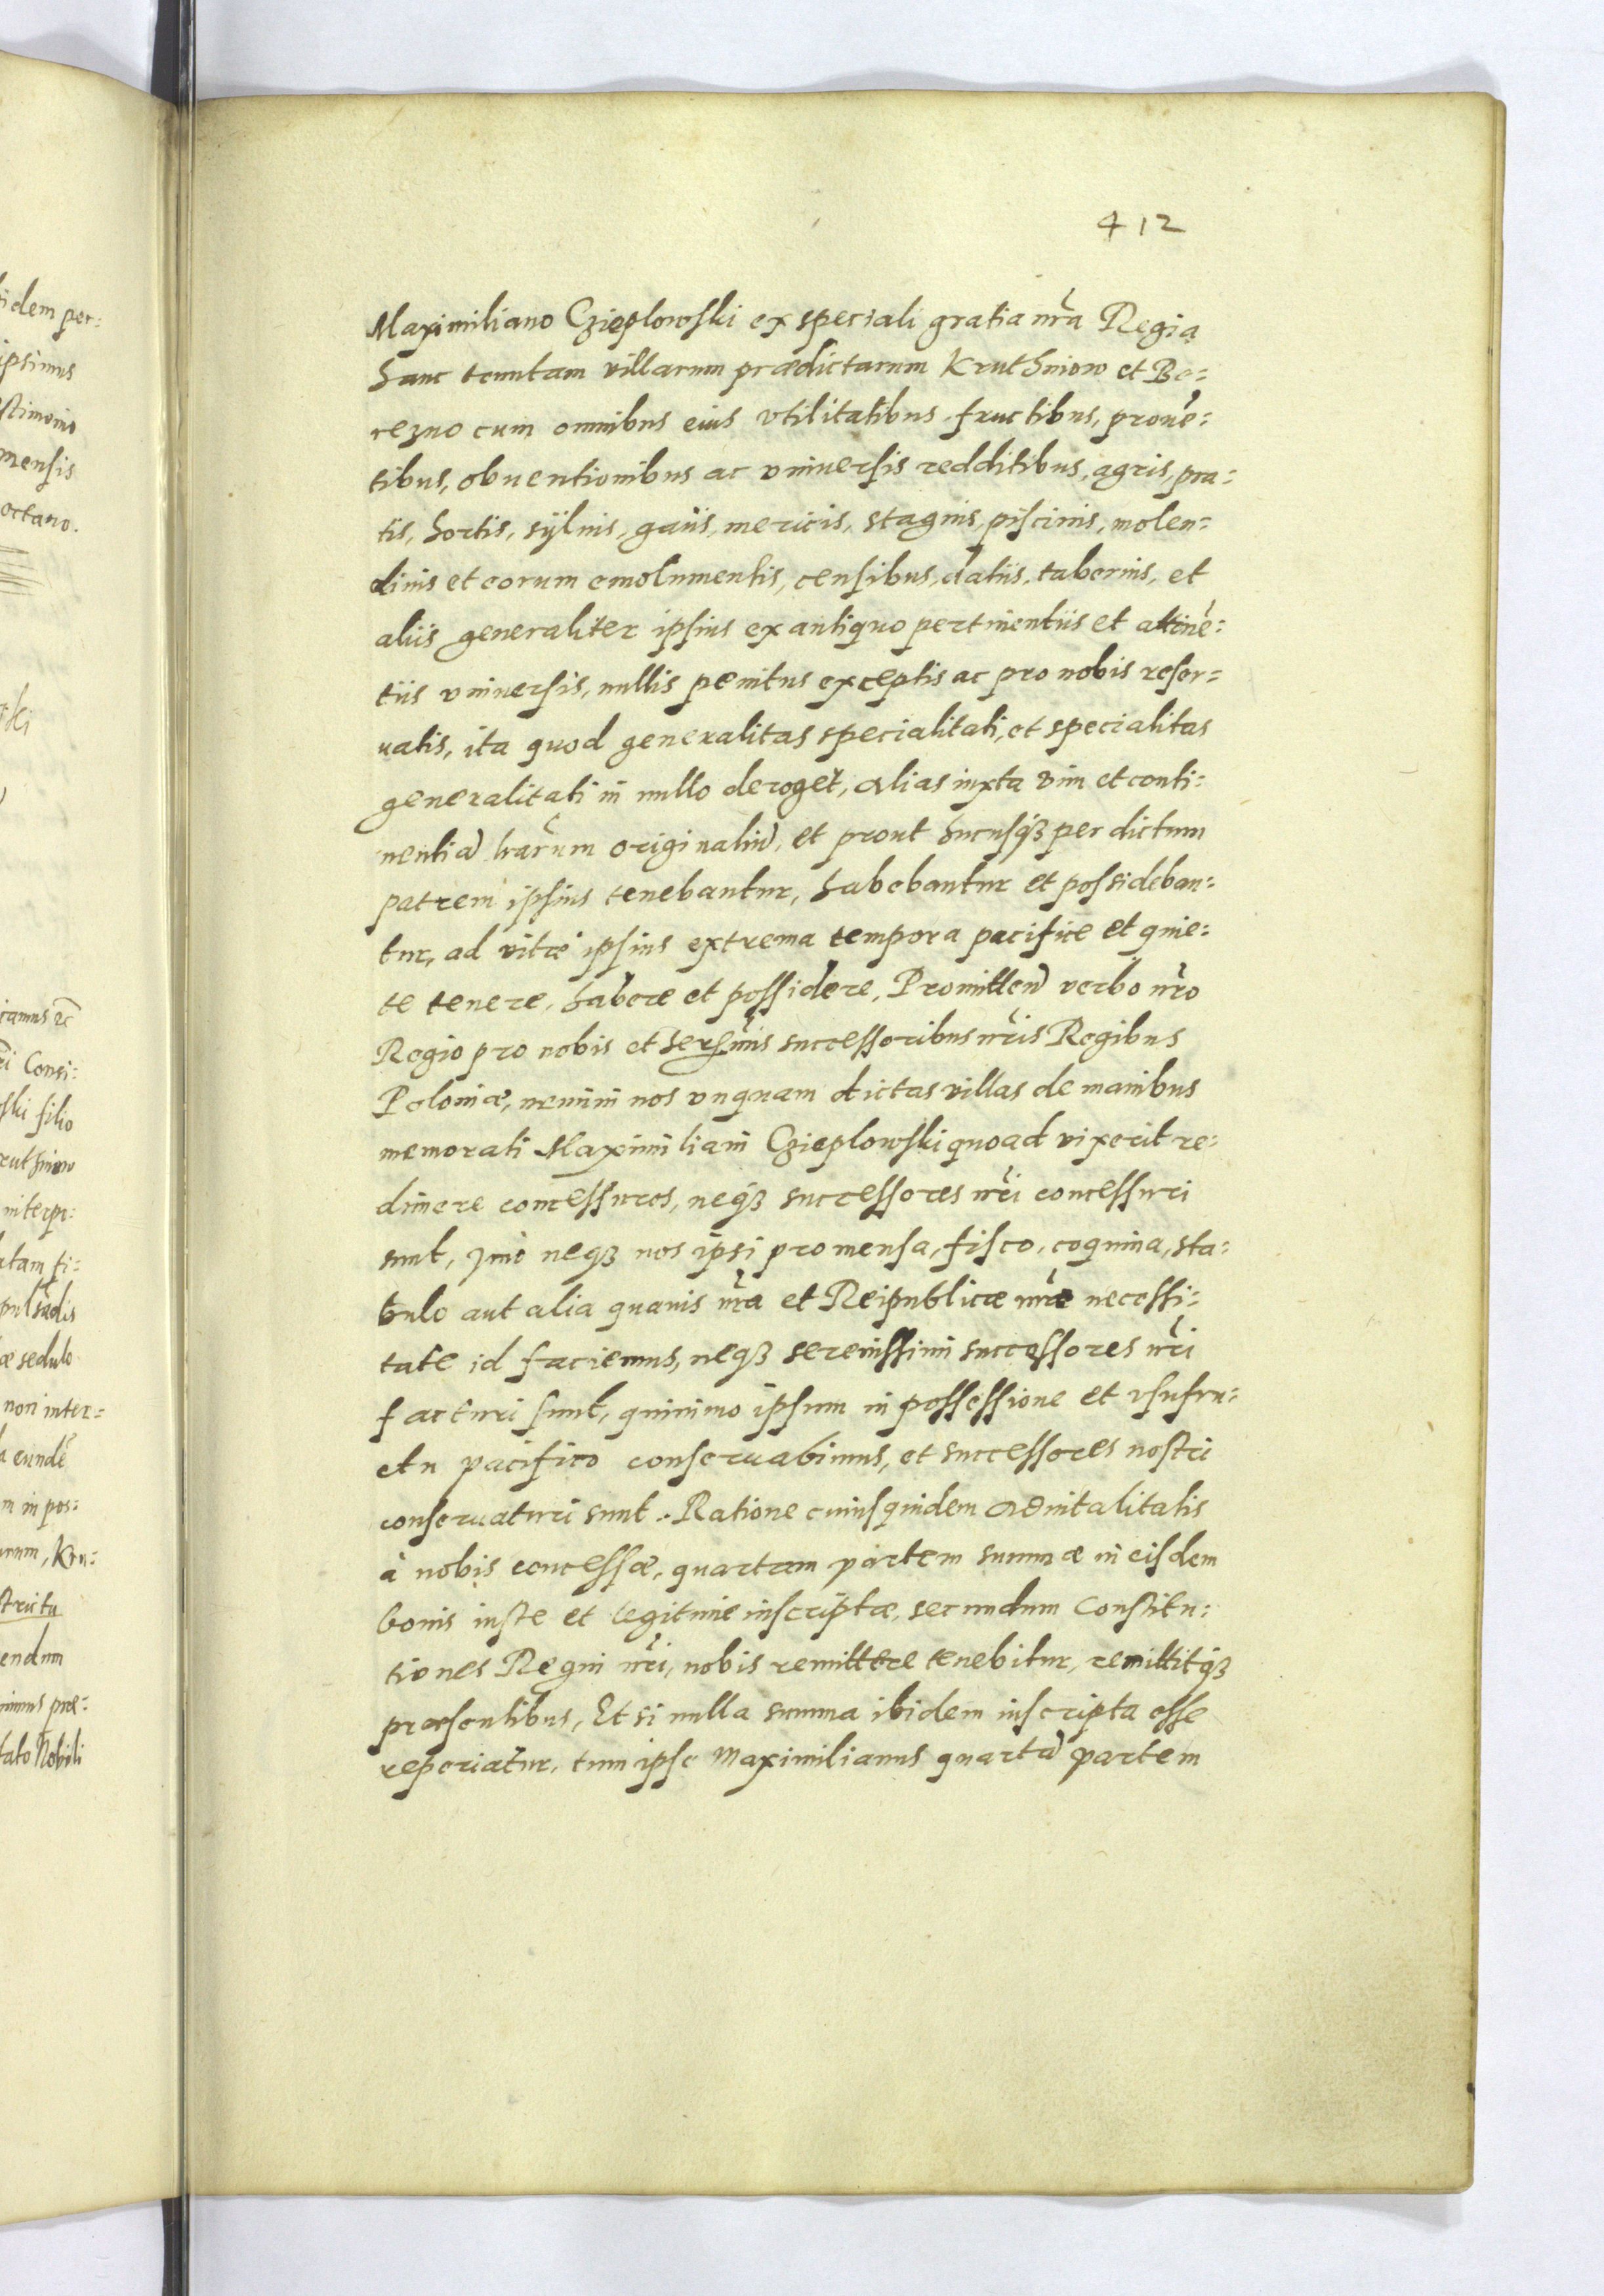 412
Maximiliano Czieplowski ex speciali gratia nr̃a Regia
hanc tenutam villarum prædictarum Kruthniow et Be=
rezno cum omnibus eius vtilitatibus fructibus, prouẽ=
tibus, obuentionibus ac vniuersis redditibus, agris, pra=
tis, hortis, sÿluis, gaiis, mericis, stagnis, piscinis, molen=
dinis et eorum emolumentis, censibus, datiis, tabernis, et
aliis generaliter ipsius ex antiquo pertinentiis et attinẽ=
tiis vniuersis, nullis penitus exceptis ac pro nobis reser=
uatis, ita quod generalitas specialitati, et specialitas
generalitati in nullo deroget, alias iuxta vim et conti=
nentiã lr̃arum originaliũ, et prout hucusq3 per dictum
patrem ipsius tenebantur, habebantur et possideban=
tur, ad vitæ ipsius extrema tempora pacifice et quie=
te tenere, habere et possidere, Promitten̄ verbo nr̃o
Regio pro nobis et Serẽmis successoribus nr̃is Regibus
Poloniæ, nemini nos vnquam dictas villas de manibus
memorati Maximiliani Czieplowski quoad vixerit re=
dimere concessuros, neq3 successores nr̃i concessuri
sunt, Jmo neq3 nos ipsi pro mensa, fisco, coquina, sta=
bulo aut alia quauis nr̃a et Reipublicæ nr̃æ necessi=
tate id faciemus, neq3 serenissimi successores nr̃i
facturi sunt, quinimo ipsum in possessione et vsufru=
ctu pacifico conseruabimus, et successores nostri
conseruaturi sunt. Ratione cuiusquidem aduitalitatis
à nobis concessæ, quartam partem summæ in eisdem
bonis iuste et legitime inscriptæ, secundum Constitu=
tiones Regni nr̃i, nobis remittere tenebitur, remittitq3
præsentibus, Et si nulla summa ibidem inscripta esse
reperiatur, tum ipse Maximilianus quartã partem